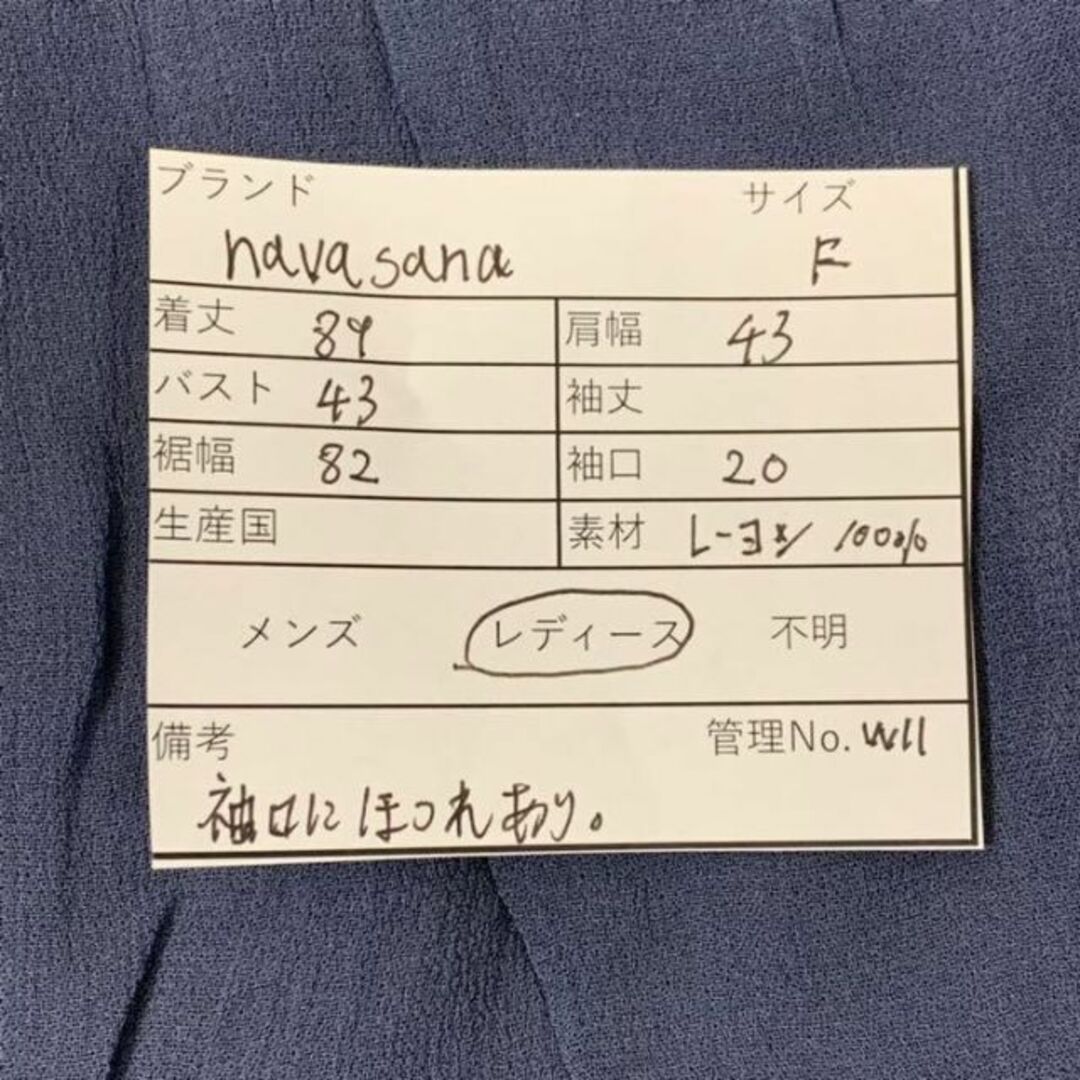 ブランド サイズ
navasana F
着丈 89 肩幅 43
バスト 43 袖丈
裾幅 82 袖口 20
生産国 素材 レーヨン 100%
メンズ レディース 不明
備考 管理No. W11
袖口にほつれあり。